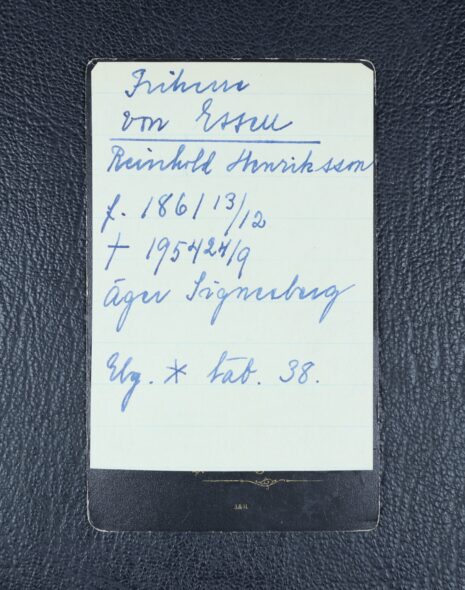 Friherre
von Essen
Reinhold Henriksson
f. 1861 13/12
† 1954 24/9
äger Signesberg
Elg. * tab. 38.